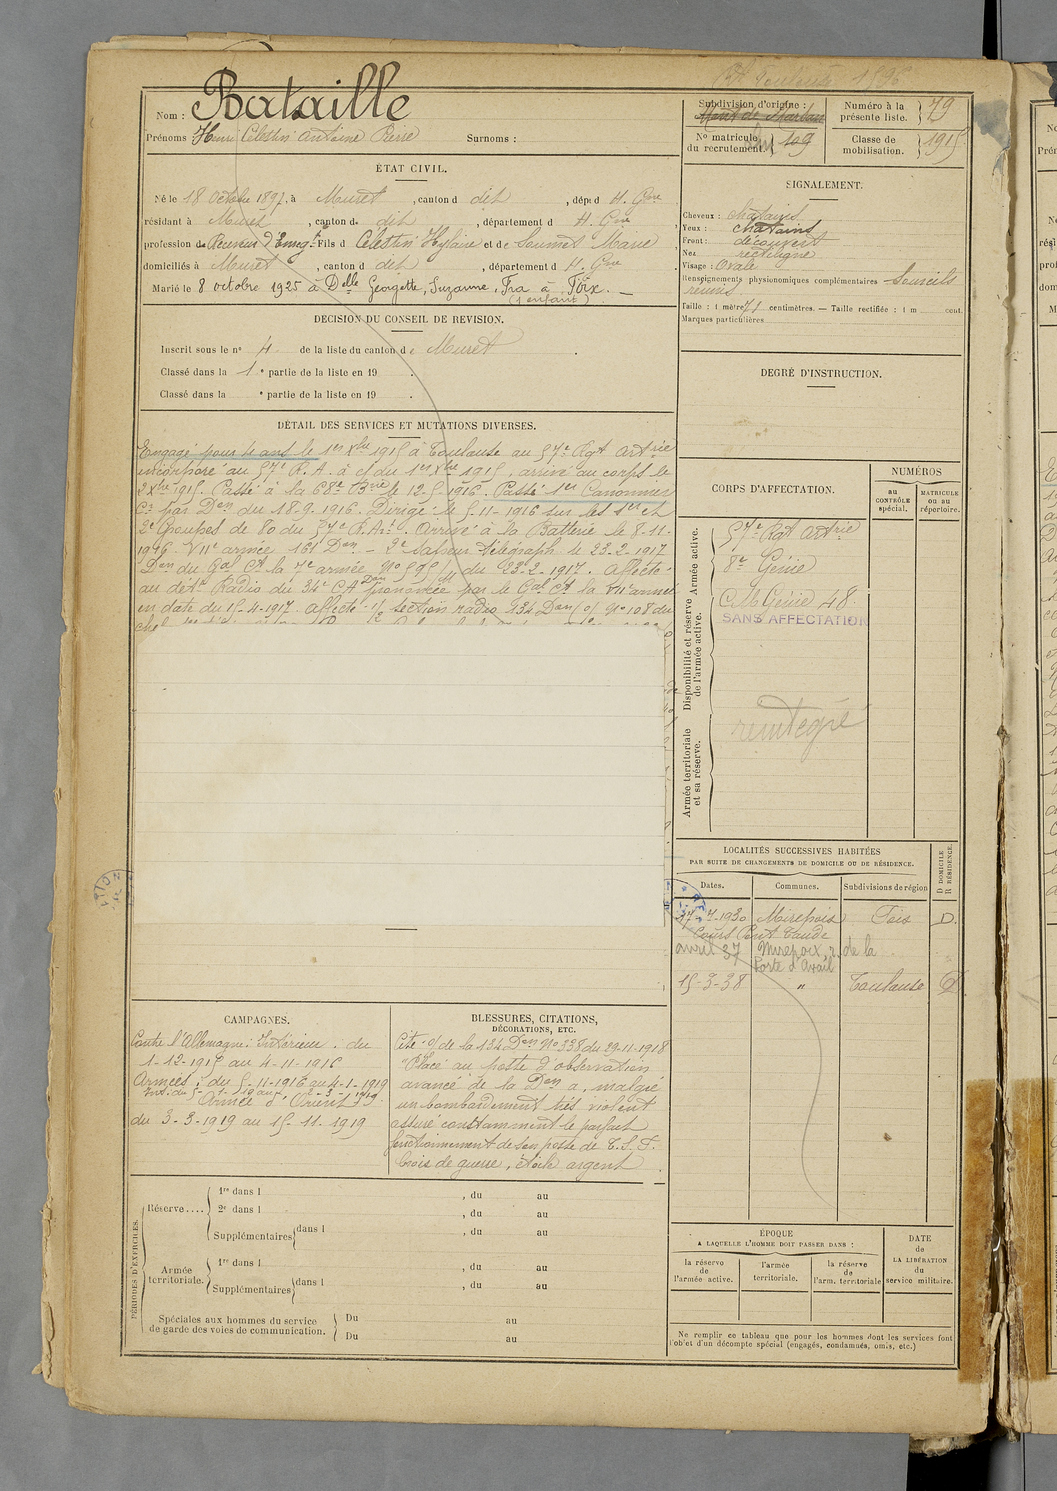 Bat Toulouse 1896
Nom : Bataille
Prénoms Henri Célestin Antoine Pierre Surnoms :
Subdivision d'origine : Mont de Marsan
Numéro à la présente liste. 79
No matricule du recrutement. 109
Classe de mobilisation. 1915
ÉTAT CIVIL.
Né le 18 Octobre 1897, à Muret, canton d dit, dépt d H. Gne
résidant à Muret, canton d. dit, département d H. Gne
profession de Receveur d'Enregt Fils d Célestin Hylaire et de Soumet Marie
domiciliés à Muret, canton d dit, département d H. Gne
Marié le 8 octobre 1925 à Delle Georgette, Suzanne, Fra à Foix. —
(1 enfant)
SIGNALEMENT.
Cheveux : chatains
Yeux : chatains
Front : découvert
Nez rectiligne
Visage : Ovale
Renseignements physionomiques complémentaires Sourcils
réunis
Taille : 1 mètre 71 centimètres. — Taille rectifiée : 1 m cent.
Marques particulières
DECISION DU CONSEIL DE REVISION.
Inscrit sous le no 4 de la liste du canton de Muret.
Classé dans la 1e partie de la liste en 19 .
Classé dans la e partie de la liste en 19 .
DEGRÉ D'INSTRUCTION.
DÉTAIL DES SERVICES ET MUTATIONS DIVERSES.
Engagé pour 4 ans le 1er Xbre 1915 à Toulouse au 57e Rgt Artrie
incorporé au 57e R.A. à c/ du 1er Xbre 1915, arrivé au corps le
2 Xbre 1915. Passé à la 68e Brie le 12-5-1916. Passé 1er Canonnier
Ct par Don du 18-9-1916. Dirigé le 5-11-1916 sur les 1er et
2e Groupes de 80 du 57e R.A. Arrivé à la Batterie le 8-11-
1916. VIIe armée 161 Don - 2e Sapeur-télégraph. le 23-2-1917
Don du Gal Ct la 7e armée No 5951 du 22-2-1917. Affecté
au dét. Radio du 34e CA Don prononcée par le Gal Ct la VIIe armée
en date du 15-4-1917. Affecté section radio 134 Don No 108 du
CORPS D'AFFECTATION.
NUMÉROS
au CONTRÔLE spécial.
MATRICULE ou au répertoire.
Armée active.
57e Rgt Artrie
8e Génie
Disponibilité et réserve de l'armée active.
C.M. Génie 48.
SANS AFFECTATION
Armée territoriale et sa réserve.
reintegré
LOCALITÉS SUCCESSIVES HABITÉES
PAR SUITE DE CHANGEMENTS DE DOMICILE OU DE RÉSIDENCE.
D DOMICILE
R RÉSIDENCE.
Dates. Communes. Subdivisions de région
27-7-1930 Mirepoix Foix D.
Cours Pont Taude
avril 37 Mirepoix, r. de la
Porte d'Avail
15-3-38 " Toulouse D
CAMPAGNES.
Contre l'Allemagne : Intérieur. du
1-12-1915 au 4-11-1916
Armées : du 5-11-1916 au 4-1-1919
Armée d'Orient
du 3-3-1919 au 15-11-1919
BLESSURES, CITATIONS,
DÉCORATIONS, ETC.
Cité o/ de la 134 Don No 338 du 29-11-1918
"Placé au poste d'observation
avancé de la Don a, malgré
un bombardement très violent
assuré constamment le parfait
fonctionnement de son poste de T.S.F.
Crois de guerre, étoile argent
PÉRIODES D'EXERCICES.
Réserve.... 1re dans l , du au
2e dans l , du au
Supplémentaires dans l , du au
Armée territoriale. 1re dans l , du au
Supplémentaires dans l , du au
Spéciales aux hommes du service de garde des voies de communication. Du au
Du au
ÉPOQUE
A LAQUELLE L'HOMME DOIT PASSER DANS :
la réserve de l'armée active.
l'armée territoriale.
la réserve de l'arm. territoriale
DATE de LA LIBÉRATION du service militaire.
Ne remplir ce tableau que pour les hommes dont les services font
l'objet d'un décompte spécial (engagés, condamnés, omis, etc.)